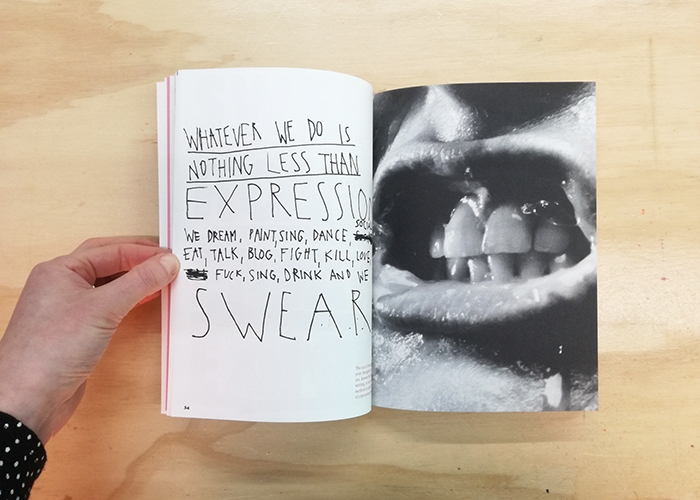 WHATEVER WE DO IS
NOTHING LESS THAN
EXPRESSIO
WE DREAM, PAINT, SING, DANCE,
EAT, TALK, BLOG, FIGHT, KILL, LOVE
FUCK, SING, DRINK AND WE
SWEAR
34